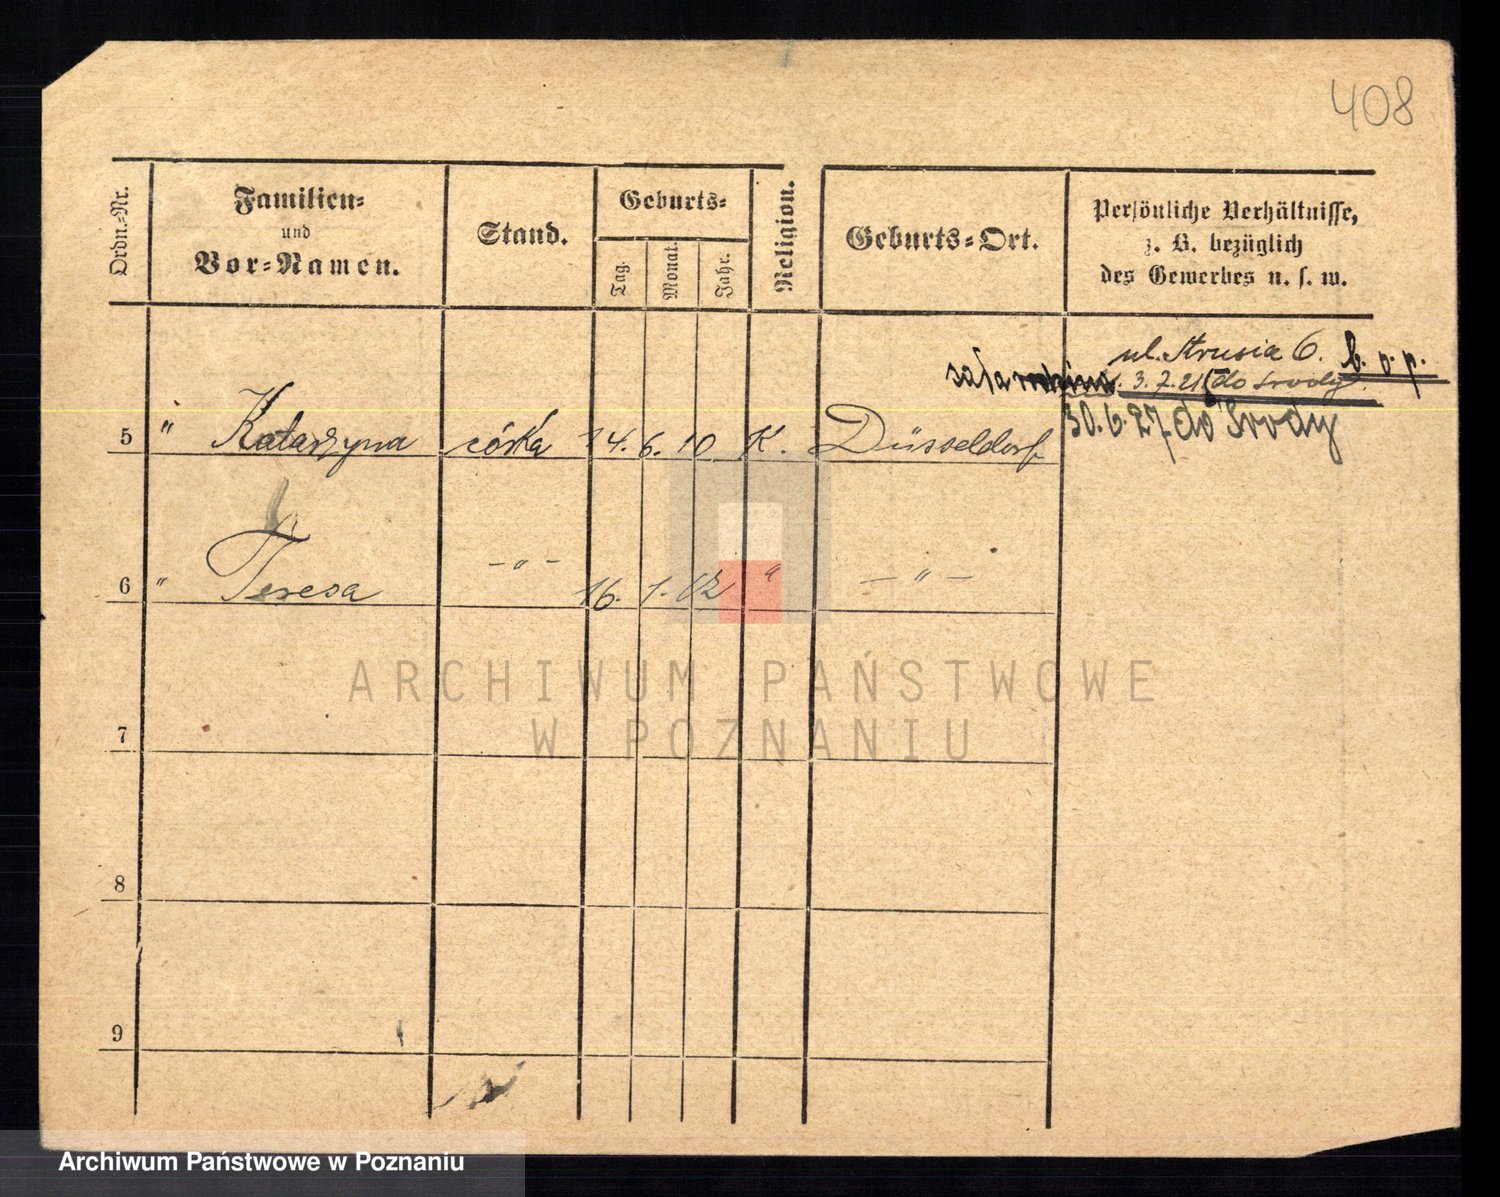 408
Ordn.-Nr.
Familien-
und
Vor-Namen.
Stand.
Geburts-
Tag.
Monat.
Jahr.
Religion.
Geburts-Ort.
Persönliche Verhältnisse,
z. B. bezüglich
des Gewerbes u. s. w.
ul. Strusia 6. b. o. p.
cała 3.7.21 do Środy.
30.6.27 do Środy
5 " Katarzyna córka 14. 6. 10 K. Düsseldorf
6 " Teresa -"- 16. 1. 12 " -"-
7
8
9
ARCHIWUM PAŃSTWOWE
W POZNANIU
Archiwum Państwowe w Poznaniu